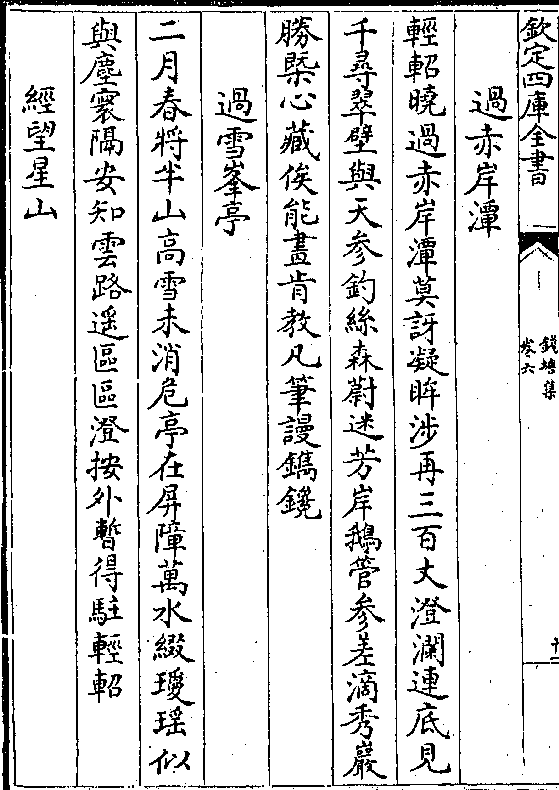 欽定四庫全書
錢塘集
卷六
十二
過赤岸潭
輕軺曉過赤岸潭莫訝凝眸涉再三百丈澄瀾連底見
千尋翠壁與天參釣絲森蔚迷芳岸鵝管參差滴秀巖
勝槩心藏俟能畫肯教凡筆謾鐫鑱
過雪峯亭
二月春將半山高雪未消危亭在屏障萬水綴瓊瑶似
與塵寰隔安知雲路遥區區澄按外暫得駐輕軺
經望星山